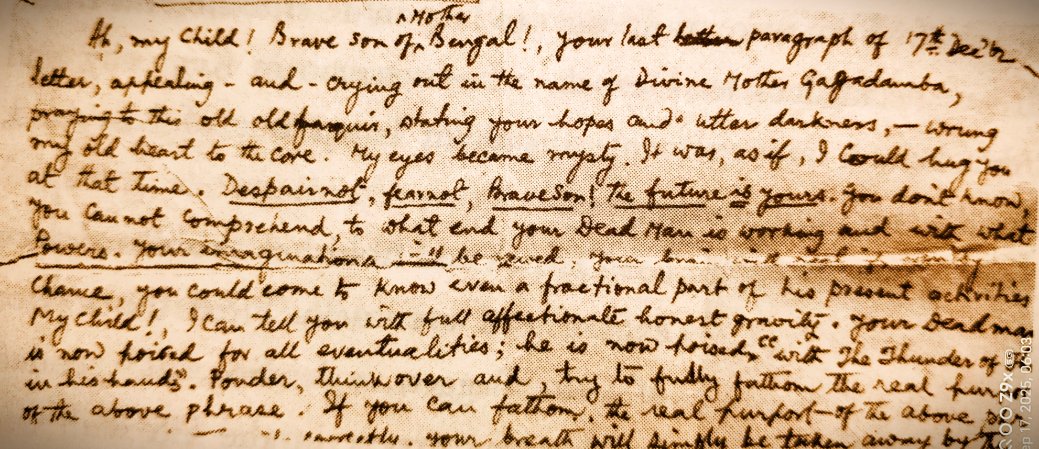 Mother
Ah, my child! Brave son of Bengal!, your last paragraph of 17th Dec'br
letter, appealing - and - crying out in the name of Divine Mother Gagadamba,
praying to this old old faquir, stating your hopes and utter darkness, — wrung
my old heart to the core. My eyes became mysty. It was, as if, I could hug you
at that time. Despair not, fear not, Brave Son! The future is yours. You don't know,
you cannot comprehend, to what end your Dead Man is working and with what
Powers. Your imaginations will be
Chance, you could come to know even a fractional part of his present activities
My Child!, I can tell you with full affectionate honest gravity. Your Dead man
is now poised for all eventualities; he is now poised, "with The Thunder of
in his hands". Ponder, think over and, try to fully fathom the real
of the above phrase. If you can fathom, the real purport of the above
correctly. your breath will simply be taken away by
QOO Z9x
Sep 17, 2025, 06:03